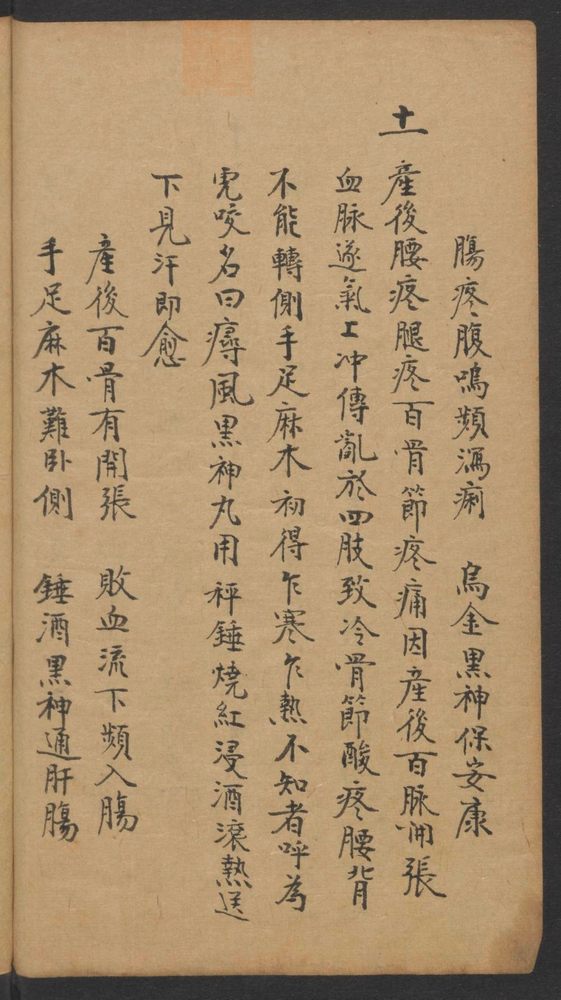 腸疼腹鳴頻瀉痢　烏金黑神保安康
十一　產後腰疼腿疼百骨節疼痛因產後百脉開張
血脉遂氣上冲傳亂於四肢致冷骨節酸疼腰背
不能轉側手足麻木初得乍寒乍熱不知者呼為
鬼咬名曰瘺風黑神丸用秤錘燒紅浸酒滚熱送
下見汗即愈
產後百骨有開張　敗血流下頻入腸
手足麻木難卧側　錘酒黑神通肝腸